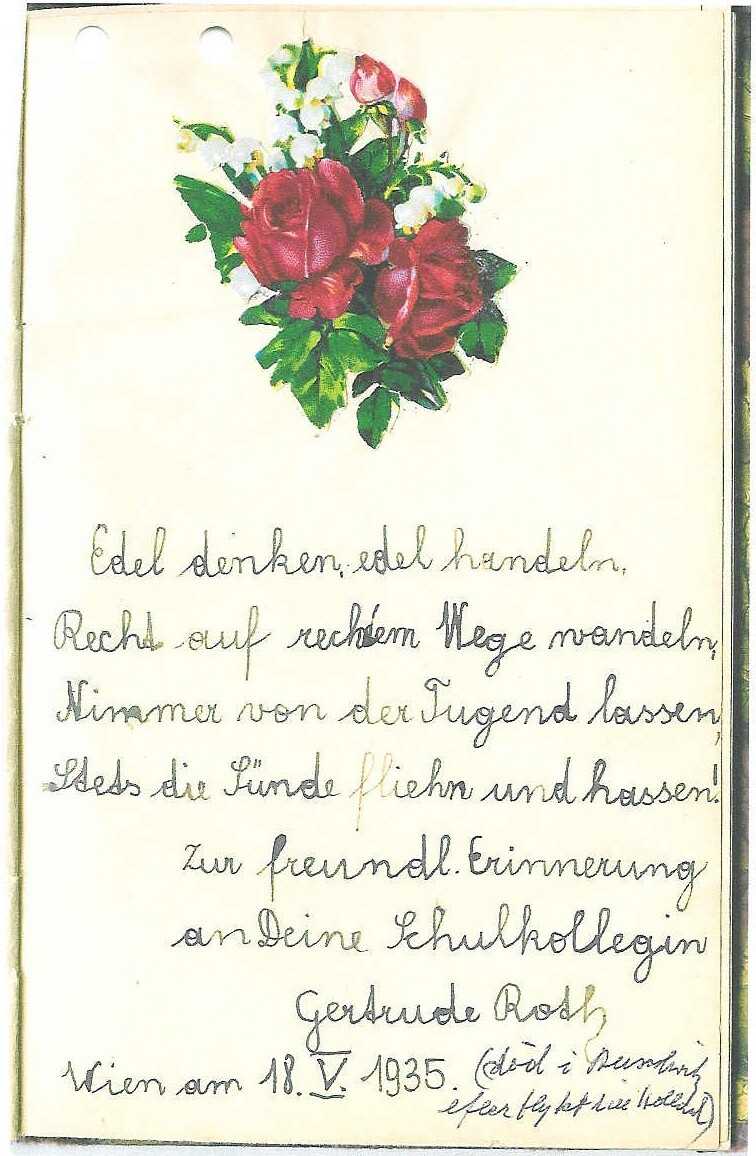 Edel denken, edel handeln,
Recht auf rechtem Wege wandeln,
Nimmer von der Tugend lassen,
Stets die Sünde fliehn und hassen!
Zur freundl. Erinnerung
an Deine Schulkollegin
Gertrude Roth
Wien am 18. V. 1935. (död i Auschwitz
efter flykt till Holland)